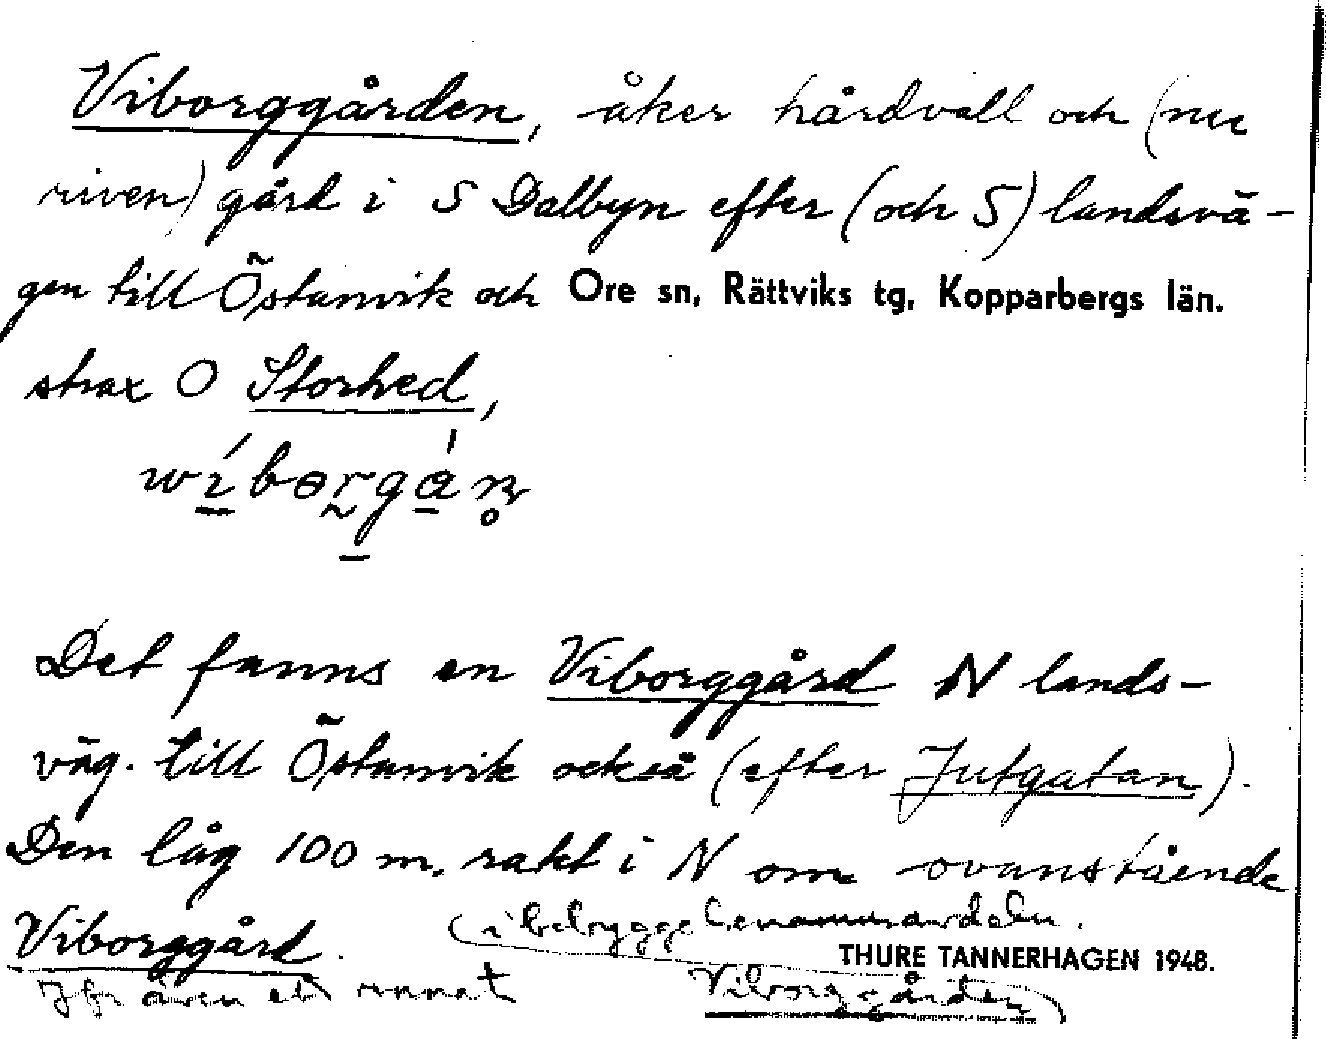 Viborggården, åker hårdvall och (nu
riven) gård i S Dalbyn efter (och S) landsvä-
gen till Östanvik och Ore sn, Rättviks tg, Kopparbergs län.
strax O Storhed,
wíborgán
Det fanns en Viborggård N lands-
väg. till Östanvik också (efter Jutgatan).
Den låg 100 m. rakt i N om ovanstående
Viborggård.
THURE TANNERHAGEN 1948.
Jfr även ett annat Viborggården